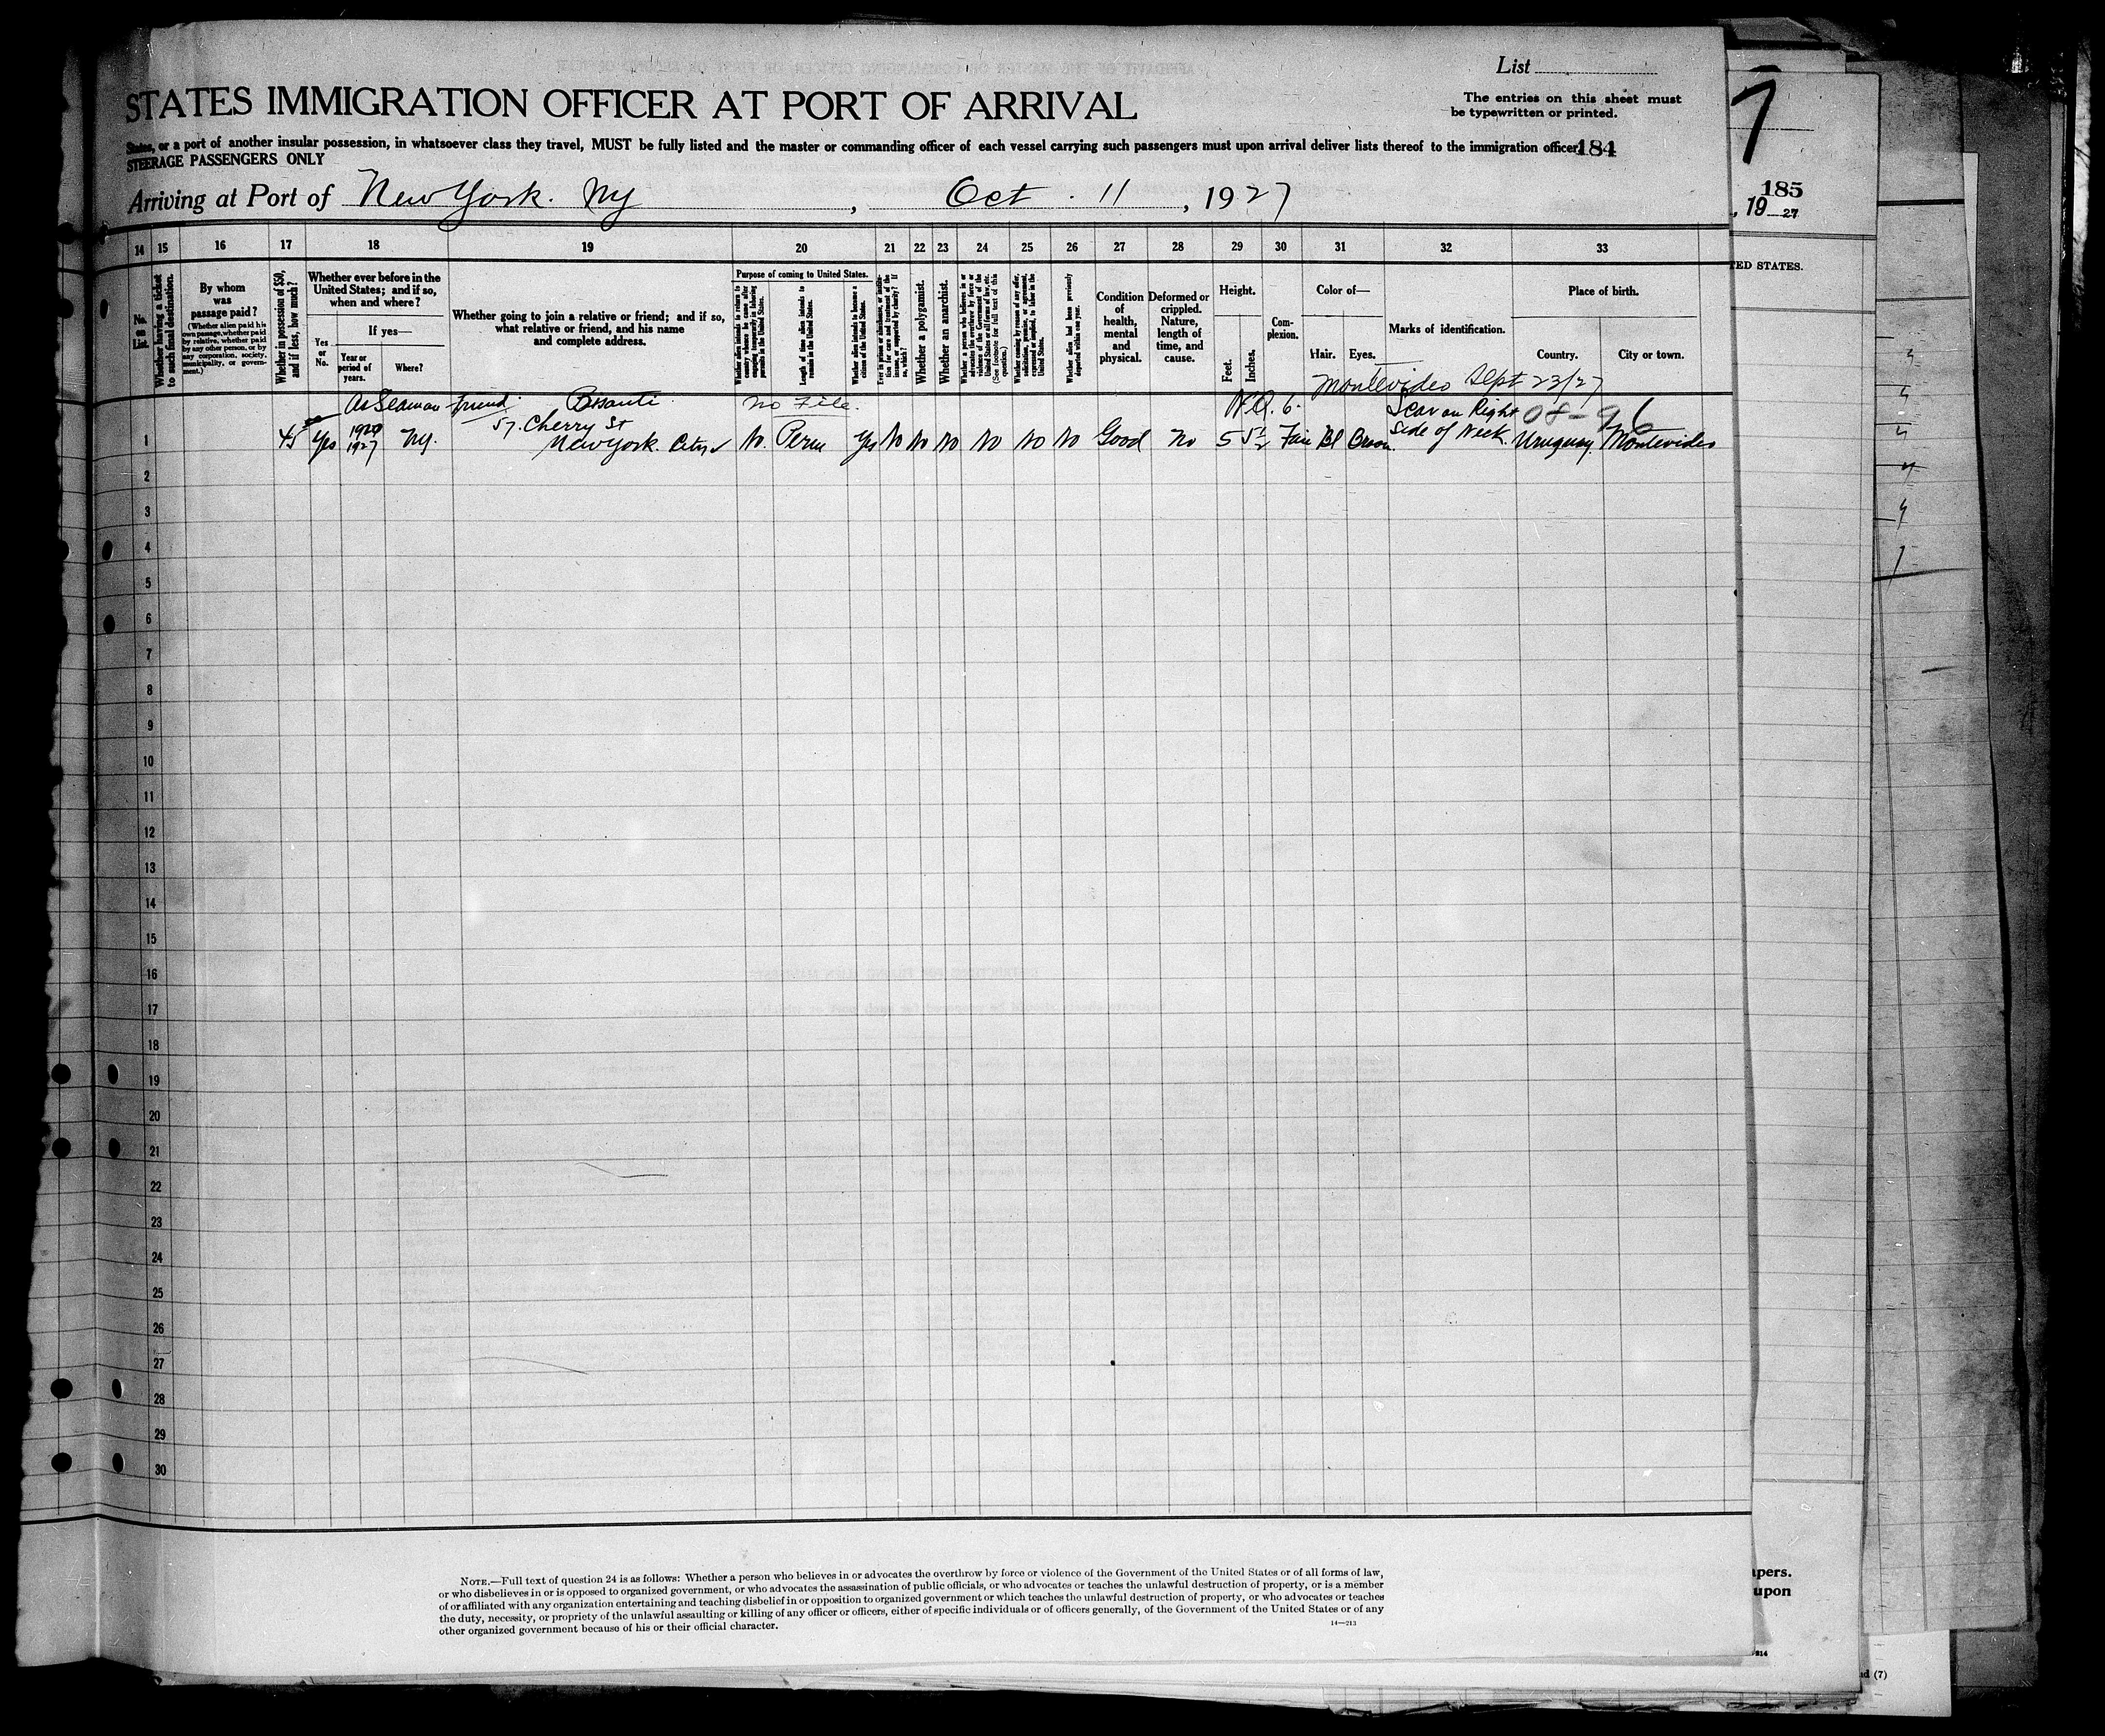 List
STATES IMMIGRATION OFFICER AT PORT OF ARRIVAL
The entries on this sheet must
be typewritten or printed.
States, or a port of another insular possession, in whatsoever class they travel, MUST be fully listed and the master or commanding officer of each vessel carrying such passengers must upon arrival deliver lists thereof to the immigration officer
184
STEERAGE PASSENGERS ONLY
Arriving at Port of New York. Ny , Oct. 11 , 1927
7
185
, 19 27
TED STATES.
14 15 16 17 18 19 20 21 22 23 24 25 26 27 28 29 30 31 32 33
No. on List.
Whether having a ticket to such final destination.
By whom was passage paid?
(Whether alien paid his own passage, whether paid by relative, whether paid by any other person, or by any corporation, society, municipality, or government.)
Whether in possession of $50, and if less, how much?
Whether ever before in the United States; and if so, when and where?
Yes or No.
If yes—
Year or period of years.
Where?
Whether going to join a relative or friend; and if so, what relative or friend, and his name and complete address.
Purpose of coming to United States.
Whether alien intends to return to country whence he came after engaging temporarily in laboring pursuits in the United States.
Length of time alien intends to remain in the United States.
Whether alien intends to become a citizen of the United States.
Ever in prison or almshouse, or institution for care and treatment of the insane, or supported by charity? If so, which?
Whether a polygamist.
Whether an anarchist.
Whether a person who believes in or advocates the overthrow by force or violence of the Government of the United States or all forms of law, etc. (See footnote for full text of this question.)
Whether coming by reason of any offer, solicitation, promise, or agreement, expressed or implied, to labor in the United States.
Whether alien had been previously deported within one year.
Condition of health, mental and physical.
Deformed or crippled. Nature, length of time, and cause.
Height.
Feet. Inches.
Complexion.
Color of—
Hair. Eyes.
Marks of identification.
Place of birth.
Country. City or town.
Montevideo Sept 23/27
As Seaman friend: no File. 6. Scar on Right 08-96
57. Cherry St
1 45 Yes 1927 Ny. New York. City No. Perm Yes No No No No No No Good No 5 5½ Fair Bl Brown. Side of Neck. Uruguay. Montevideo
2
3
4
5
6
7
8
9
10
11
12
13
14
15
16
17
18
19
20
21
22
23
24
25
26
27
28
29
30
NOTE.—Full text of question 24 is as follows: Whether a person who believes in or advocates the overthrow by force or violence of the Government of the United States or of all forms of law,
or who disbelieves in or is opposed to organized government, or who advocates the assassination of public officials, or who advocates or teaches the unlawful destruction of property, or is a member
of or affiliated with any organization entertaining and teaching disbelief in or opposition to organized government or which teaches the unlawful destruction of property, or who advocates or teaches
the duty, necessity, or propriety of the unlawful assaulting or killing of any officer or officers, either of specific individuals or of officers generally, of the Government of the United States or of any
other organized government because of his or their official character.
14—213
apers.
upon
(7)